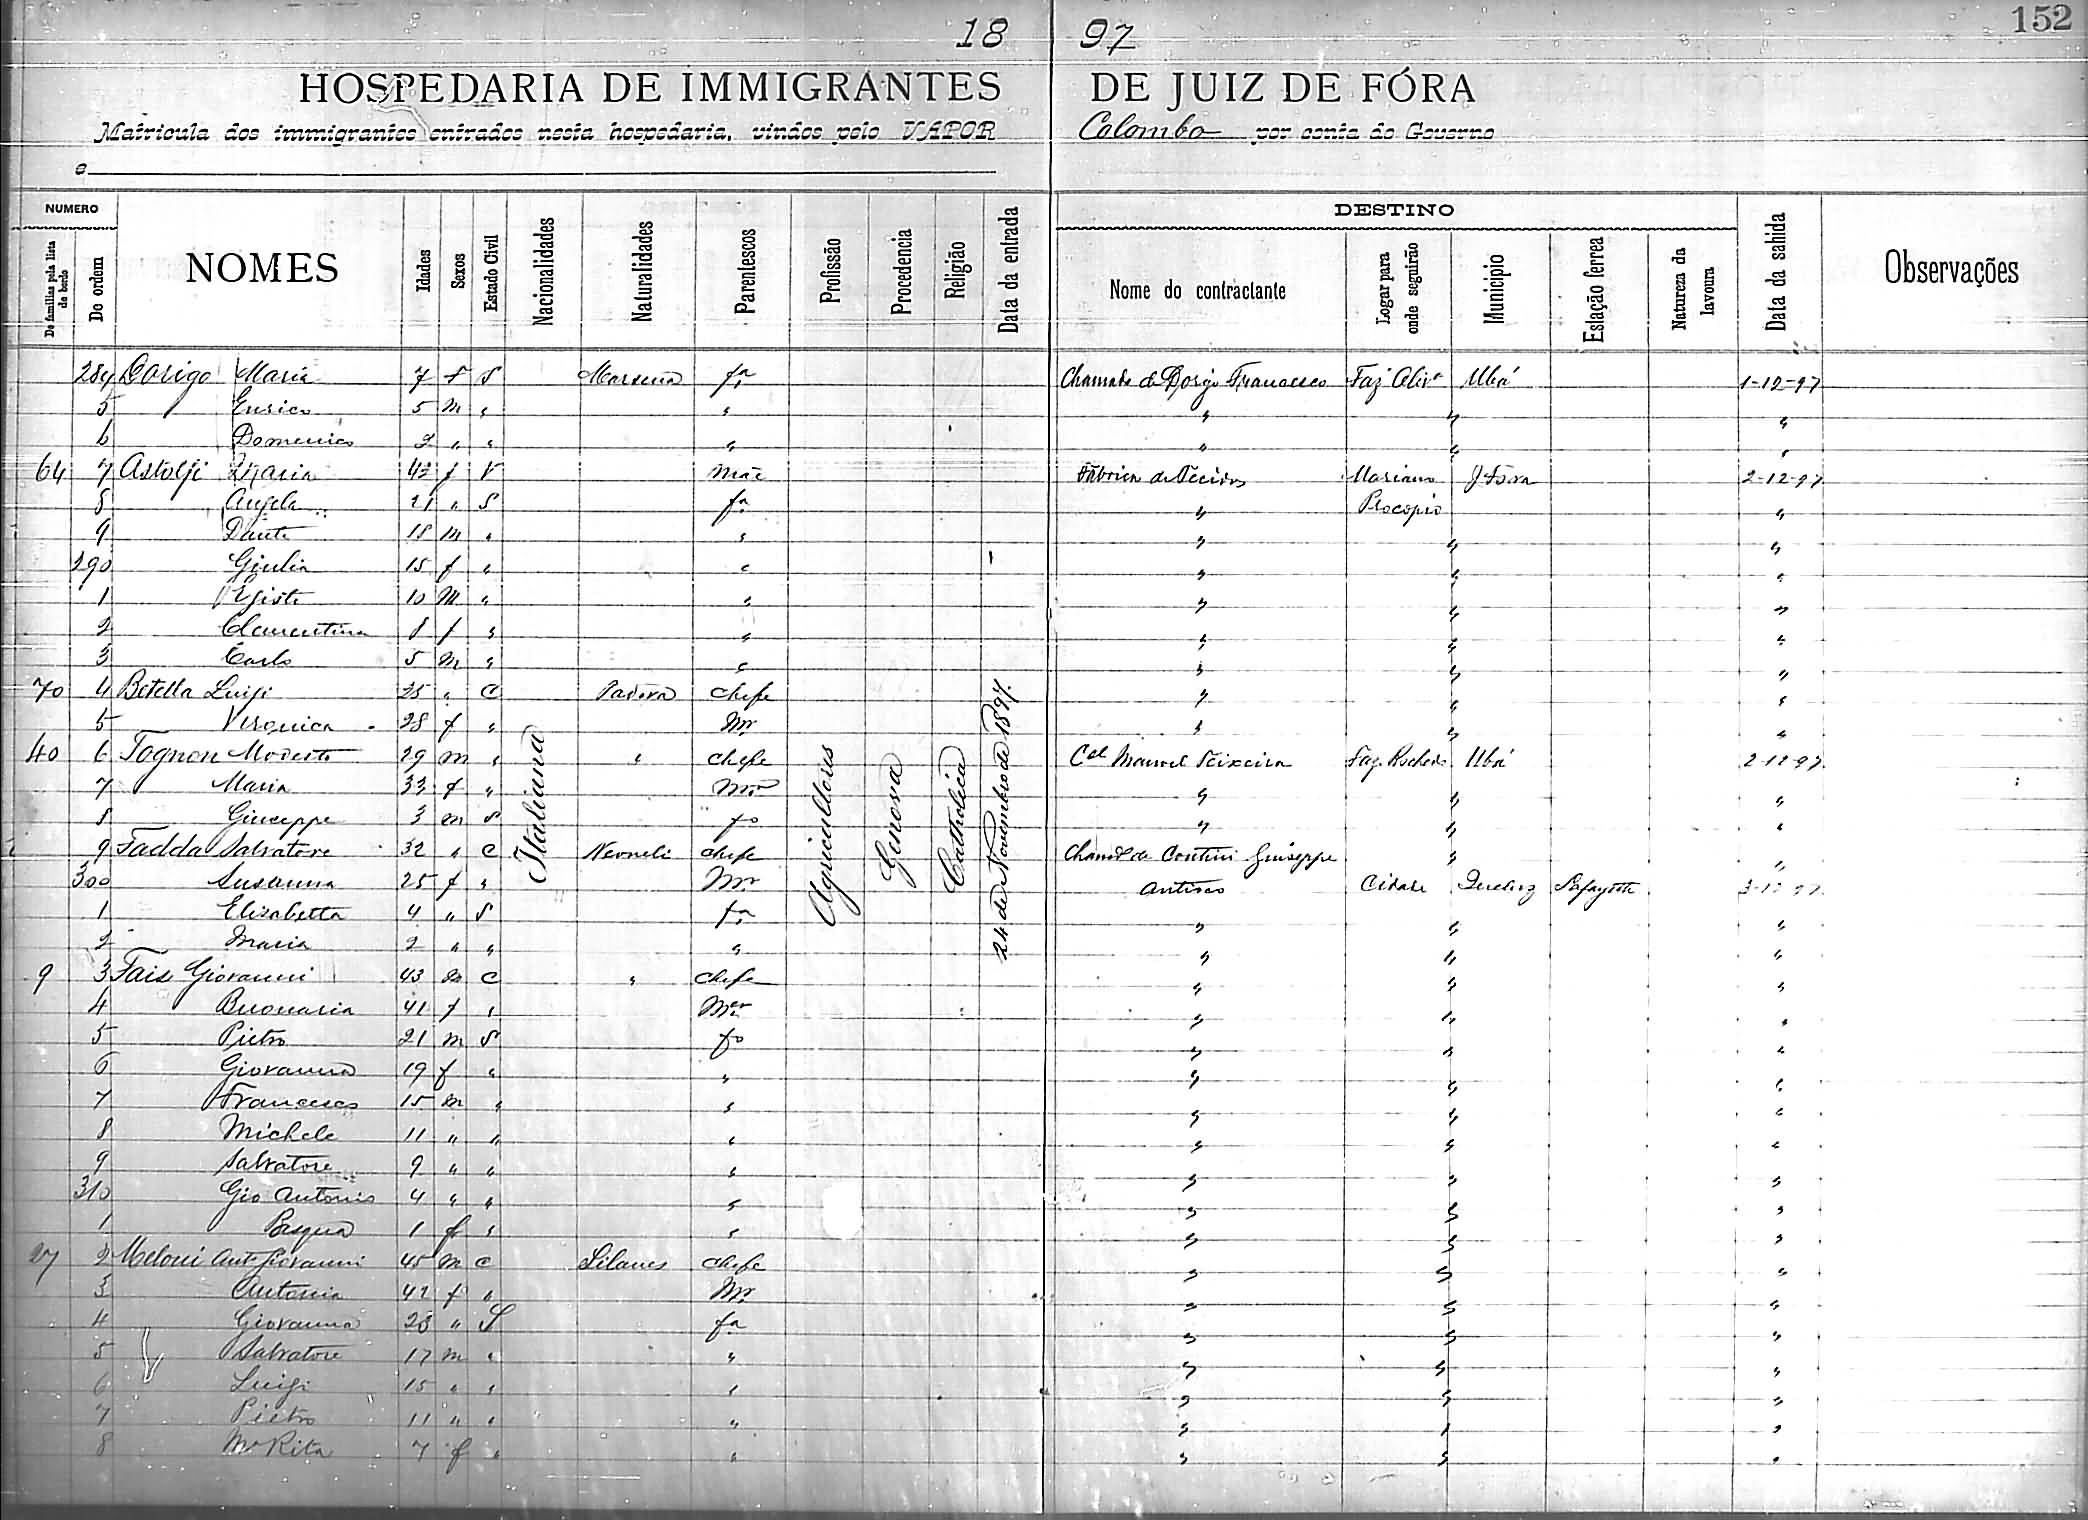 152
18 97
HOSPEDARIA DE IMMIGRANTES DE JUIZ DE FÓRA
Matricula dos immigrantes entrados nesta hospedaria, vindos pelo VAPOR Colombo por conta do Governo
e
NUMERO DESTINO
De familias pela lista de bordo De ordem NOMES Idades Sexos Estado Civil Nacionalidades Naturalidades Parentescos Profissão Procedencia Religião Data da entrada Nome do contractante Logar para onde seguirão Municipio Estação ferrea Natureza da lavoura Data da sahida Observações
Italiana Agricultores Genova Catholica 24 de Novembro de 1897.
284 Dorigo Maria 7 f S fa Chamado de Dorigo Francesco Faz Uba 1-12-97
5 Enrico 5 m " " " " "
6 Domenico 2 " " " " " "
64 7 Astolfi Maria 42 f V Mãe Fabrica de Tecidos Mariano J Fora 2-12-97
8 Angela 21 " S fa " Procopio "
9 Dante 18 m " " " " "
290 Giulia 15 f " " " " "
1 Egisto 10 M " " " " "
2 Clementina 8 f " " " " "
3 Carlo 5 m " " " " "
70 4 Betella Luigi 25 " C Padova Chefe " " "
5 Veronica 28 f " Mr " " "
40 6 Tognon Modesto 29 m " " Chefe Cel Manoel Teixeira Faz. Rochedo Ubá 2-12-97
7 Maria 33 f " Mr " " "
8 Giuseppe 3 m S fo " " "
9 Fadda Salvatore 32 " C Neoneli Chefe Chamo de Contini Giuseppe " "
300 Susanna 25 f " Mr Antioco Cidade Queluz Lafayette 3-12-97
1 Elisabetta 4 " S fa " " "
2 Maria 2 " " " " " "
9 3 Fais Giovanni 43 m C " Chefe " " "
4 Buonaria 41 f " Mer " " "
5 Pietro 21 m S fo " " "
6 Giovanna 19 f " " " " "
7 Francesco 15 m " " " " "
8 Michele 11 " " " " " "
9 Salvatore 9 " " " " " "
310 Gio Antonio 4 " " " " " "
1 Pasqua 1 f " " " " "
27 2 Meloni Ant Giovanni 45 m C Silanes Chefe " " "
3 Antonia 42 f " Mr " " "
4 Giovanna 23 " S fa " " "
5 Salvatore 17 m " " " " "
6 Luigi 15 " " " " " "
7 Pietro 11 " " " " " "
8 Ma Rita 7 f " " " " "